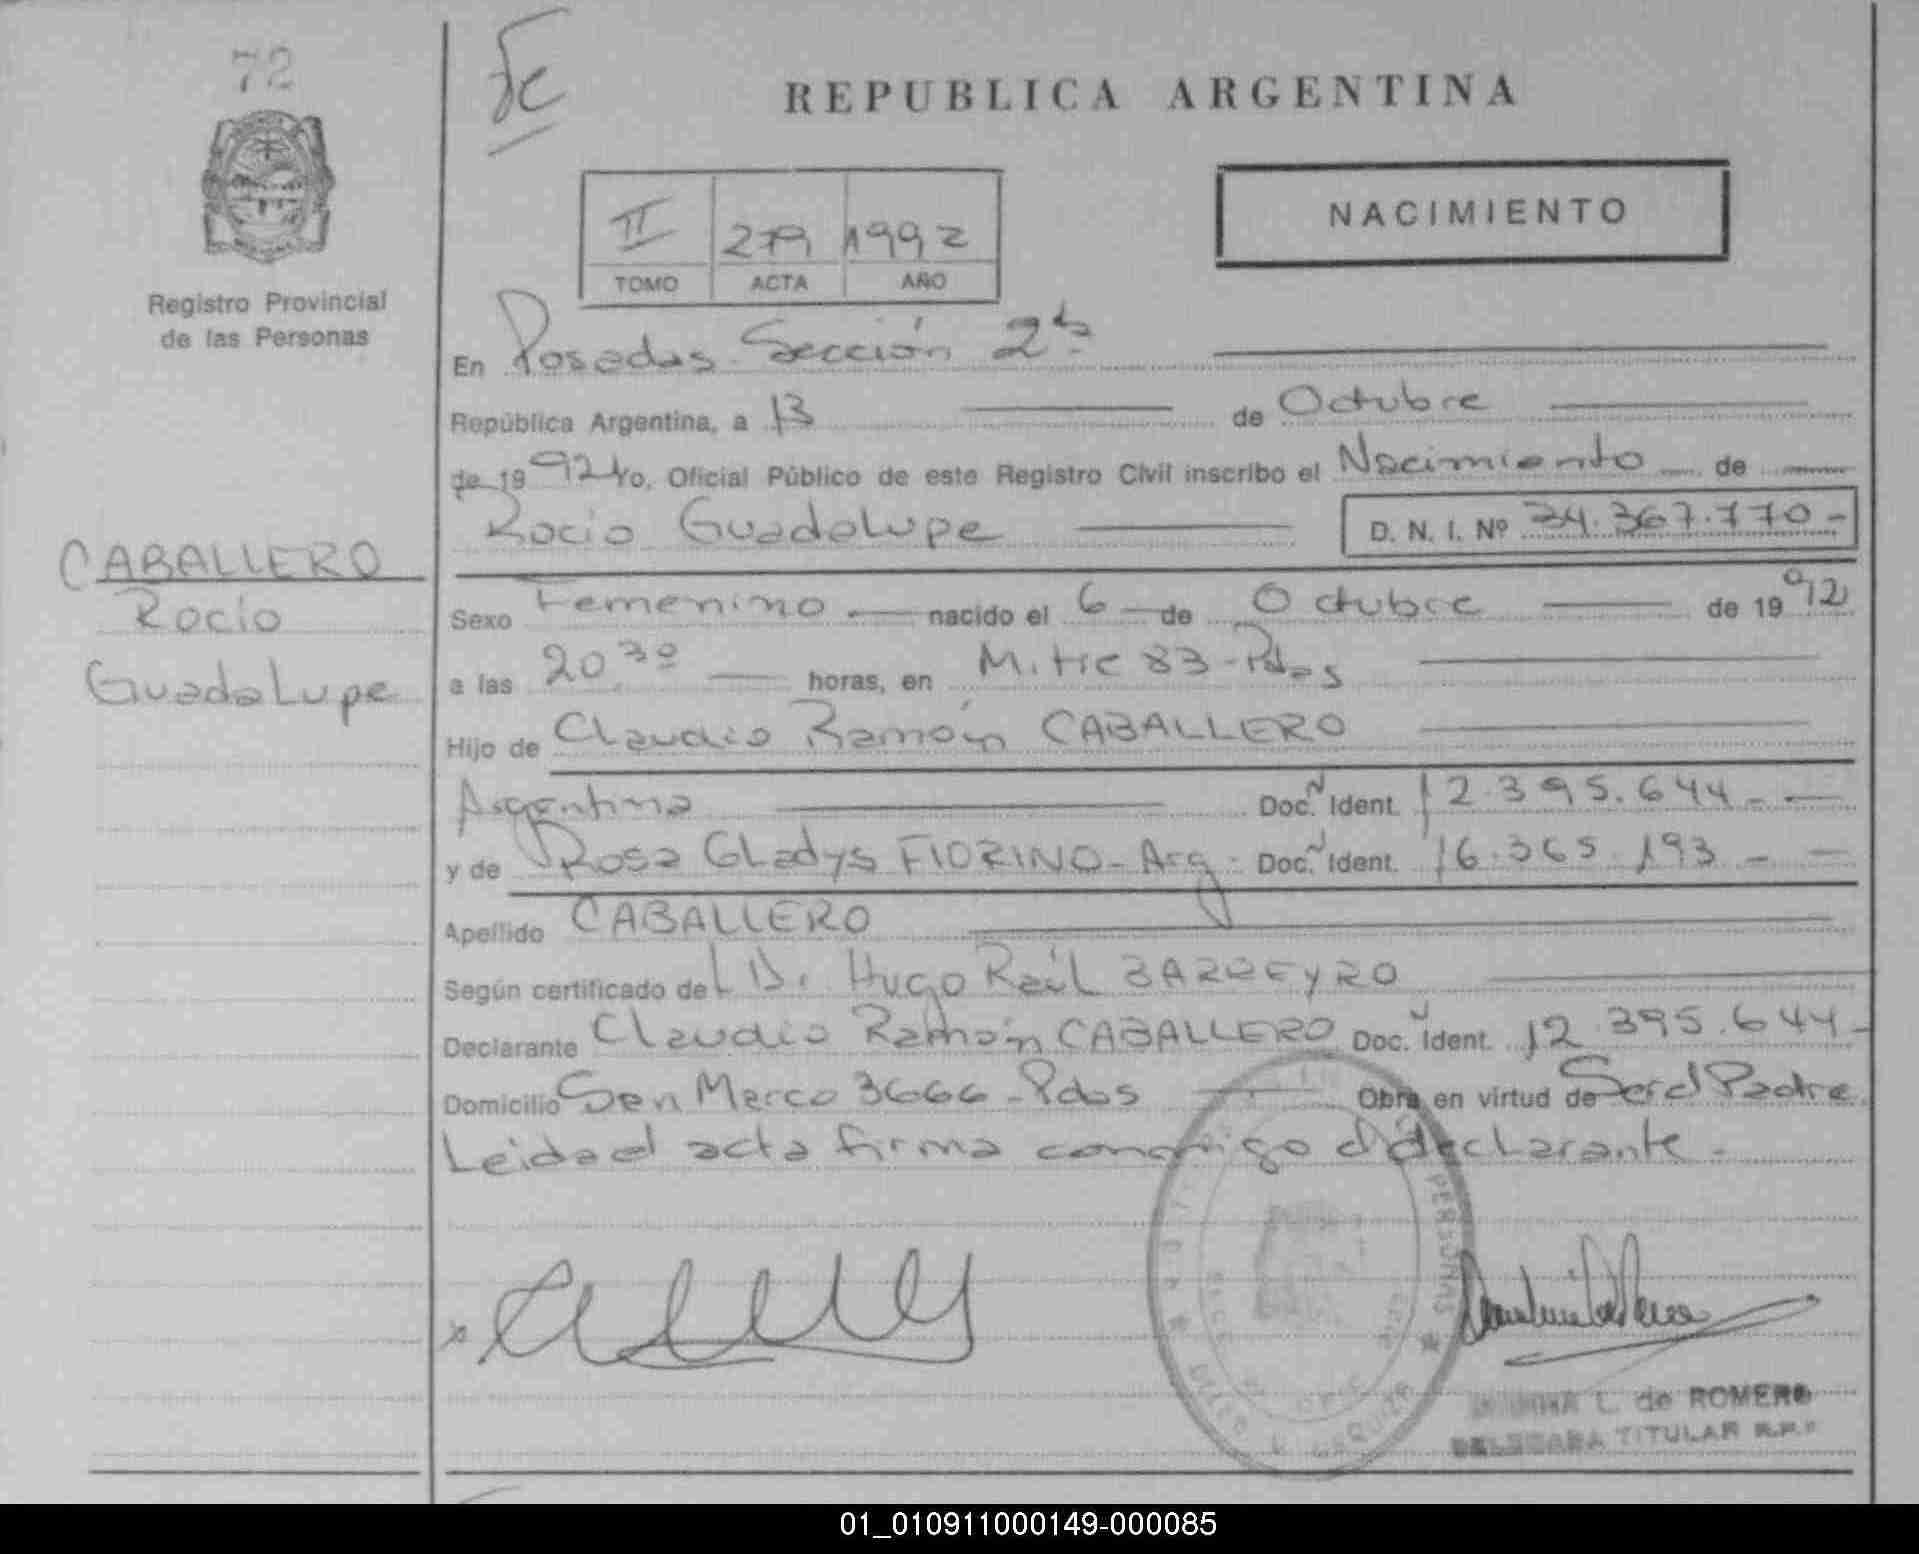 72
Fe
REPUBLICA ARGENTINA
II 279 1992
TOMO ACTA AÑO
NACIMIENTO
Registro Provincial
de las Personas
En Posadas Sección 2ª
República Argentina, a 13 de Octubre
de 1992 Yo, Oficial Público de este Registro Civil inscribo el Nacimiento de
Rocio Guadalupe D. N. I. Nº 34.367.770-
CABALLERO
Rocío
Guadalupe
Sexo Femenino nacido el 6 de Octubre de 1992
a las 20,30 horas, en Mitre 83-Pdas
Hijo de Claudio Ramón CABALLERO
Argentina Doc. Ident. 12.395.644--
y de Rosa Gladys FIORINO-Arg. Doc. Ident. 16.365.193--
Apellido CABALLERO
Según certificado del Dr Hugo Raúl BARREYRO
Declarante Claudio Ramón CABALLERO Doc. Ident. 12.395.644-
Domicilio San Marco 3666-Pdas Obra en virtud de Ser el Padre
Leida el acta firma conmigo el declarante-
PERSONAS
L. de ROMERO
DELEGADA TITULAR R.P.P
01_010911000149-000085